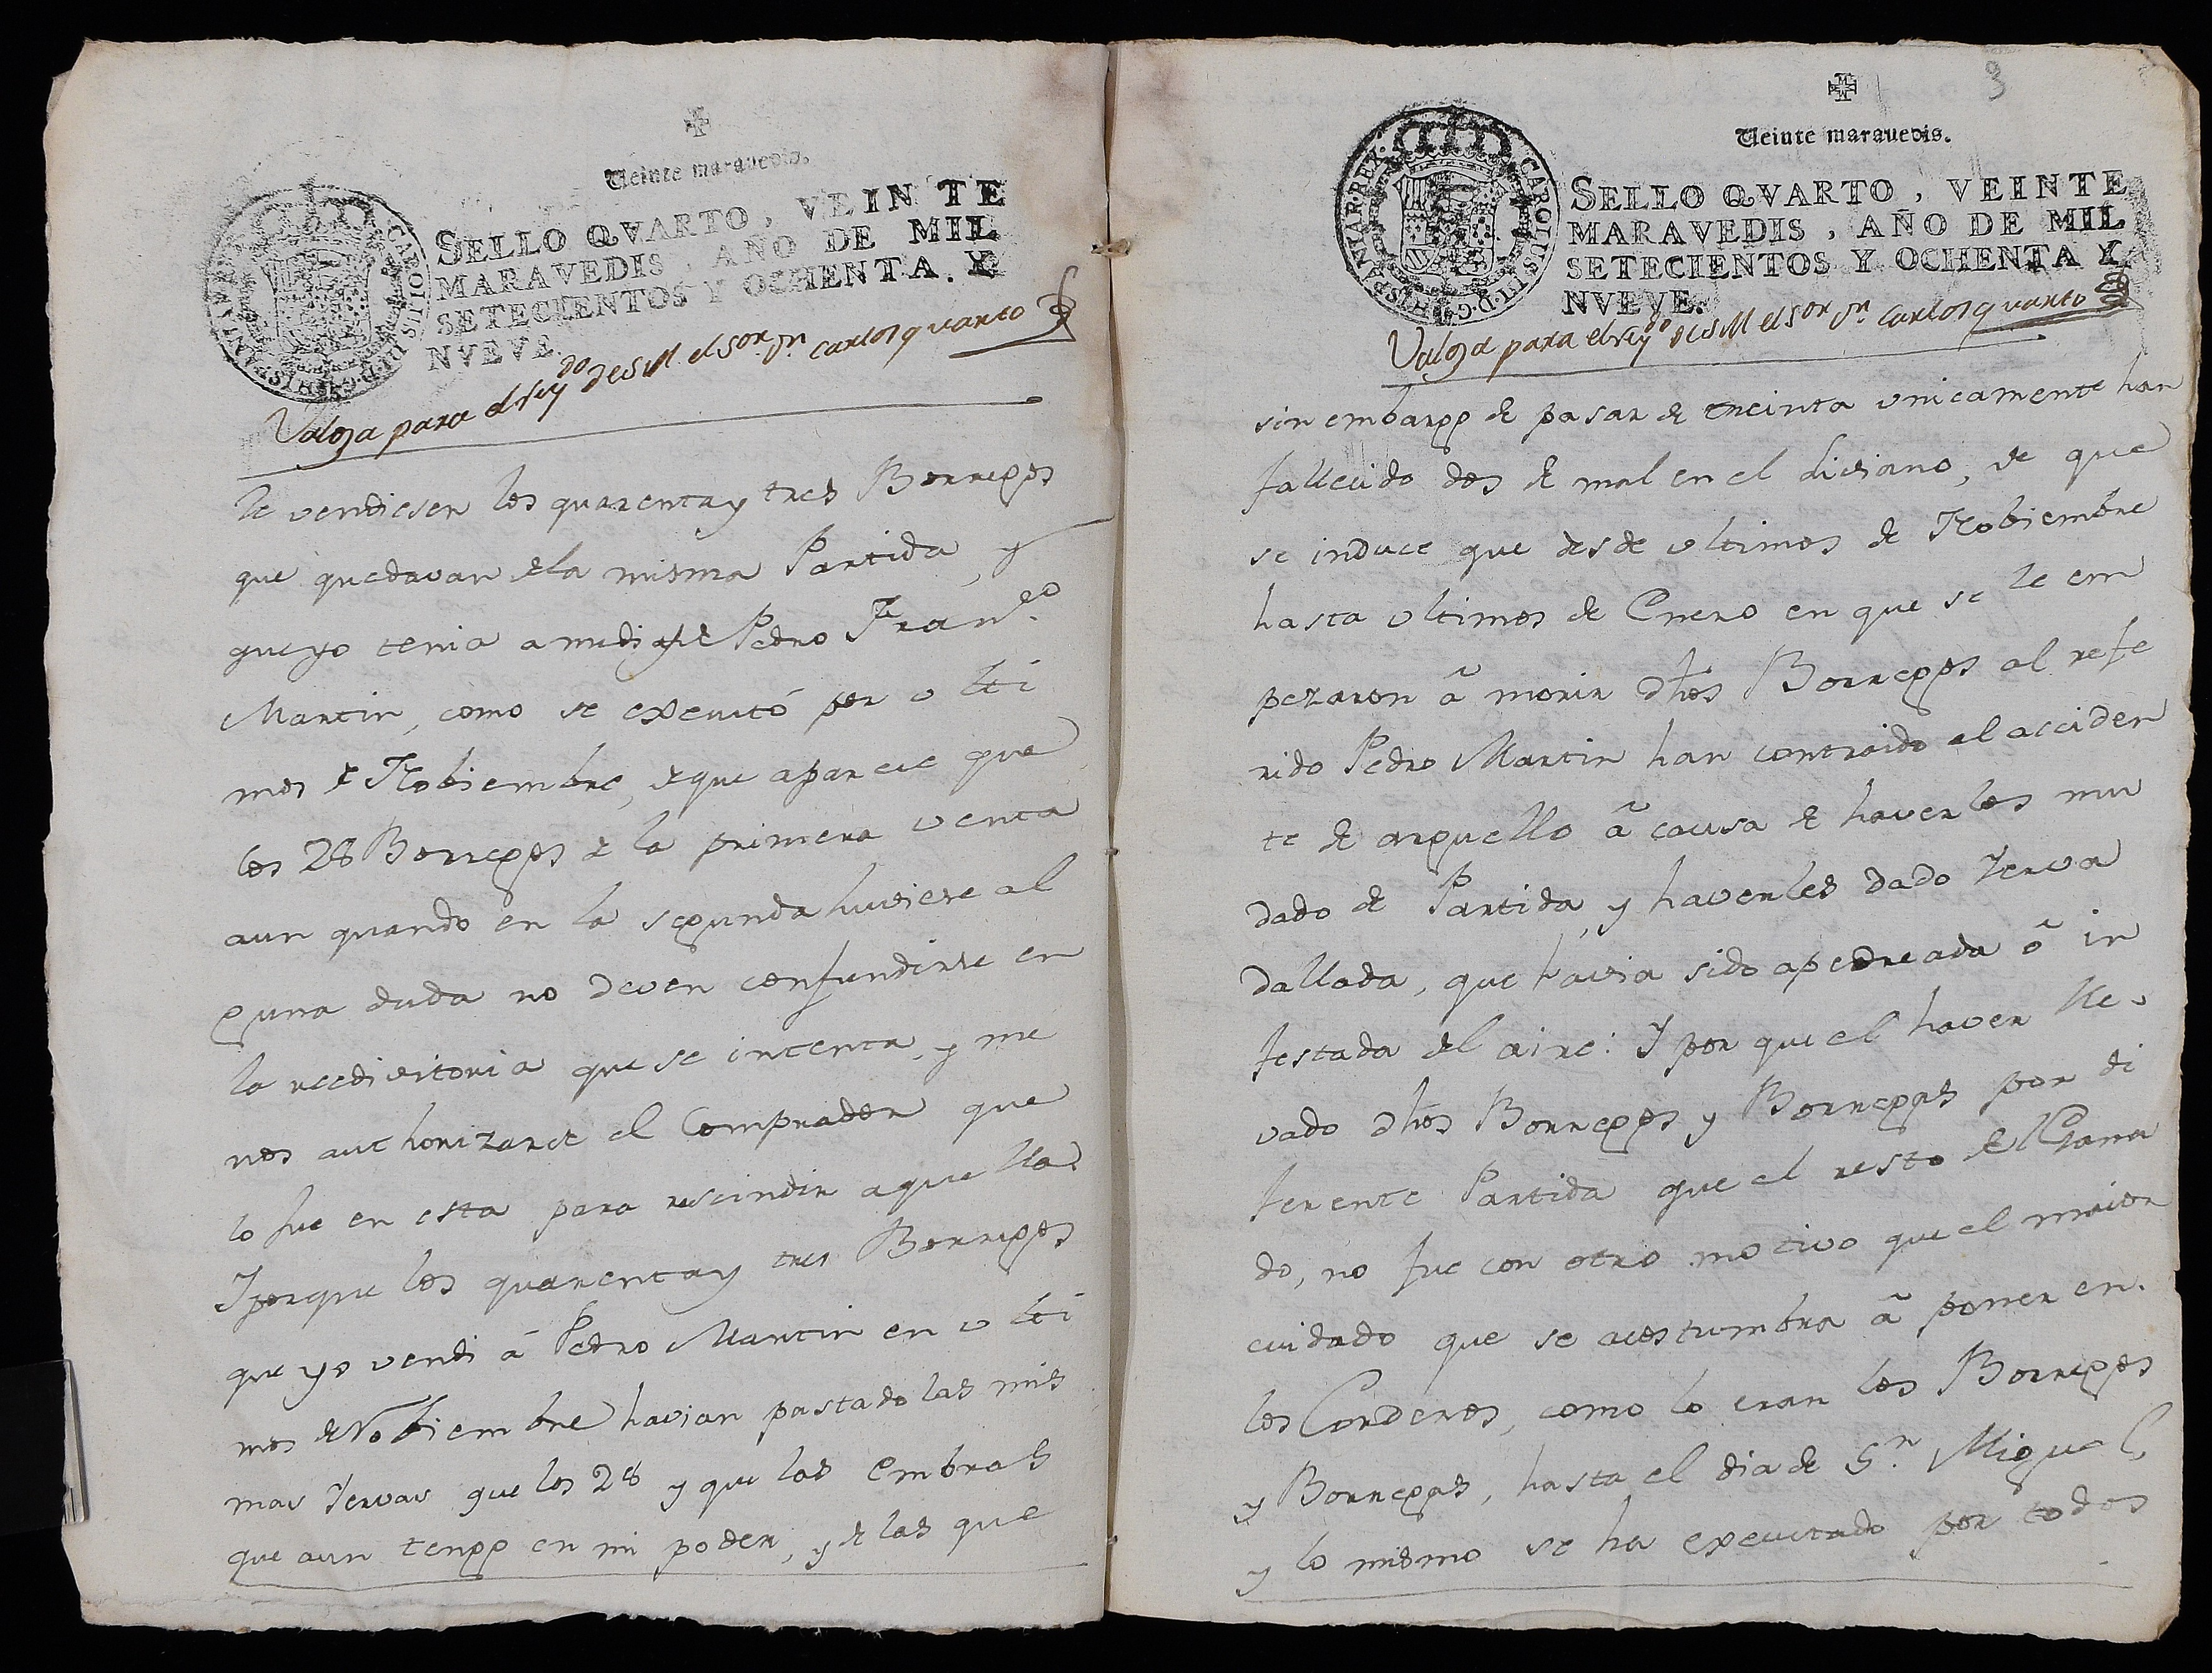 Veinte maravedis.
SELLO QVARTO, VEINTE
MARAVEDIS, AÑO DE MIL
SETECIENTOS Y OCHENTA Y
NVEVE.
Valga para el reydo de S M. el Sor. Dn. Carlos quarto
le vendiesen los quarenta y tres Borregos
que quedavan de la misma Partida, y
que yo tenia a medias de Pedro Franco.
Martin, como se executó por ulti
mos de Nobiembre, de que aparece que
los 28 Borregos de la primera venta
aun quando en la segunda huviese al
guna duda no deven confundirse en
la reedivitoria que se intenta, y me
nos authorizarse el Comprador que
lo fue en esta para rescindir aquella.
Y porque los quarenta y tres Borregos
que yo vendi á Pedro Martin en ulti
mos de Nobiembre havian pastado las mis
mas Yervas que los 28 y que las Embras
que aun tengo en mi poder, y de las que
3
Veinte maravedis.
CAROLUS IT D.G. HISPANIAR. REX.
SELLO QVARTO, VEINTE
MARAVEDIS, AÑO DE MIL
SETECIENTOS Y OCHENTA Y
NVEVE.
Valga para el reydo de S M el Sor Dn. Carlos quarto
sin embargo de pasar de treinta unicamente han
fallecido dos de mal en el liviano, de que
se induce que desde ultimos de Nobiembre
hasta ultimos de Enero en que se le em
pezaron â morir dhos Borregos al refe
rido Pedro Martin han contraido el acciden
te de arquello â causa de haverlos mu
dado de Partida, y haverles dado Yerva
dallada, que havia sido apedreada ô in
festada del aire: Y por que el haver lle-
vado dhos Borregos y Borregas por di
ferente Partida que el resto del Gana
do, no fue con otro motivo que el maior
cuidado que se acostumbra â poner en
los Corderos, como lo eran los Borregos
y Borregas, hasta el dia de Sn. Miguel,
y lo mismo se ha executado por todos